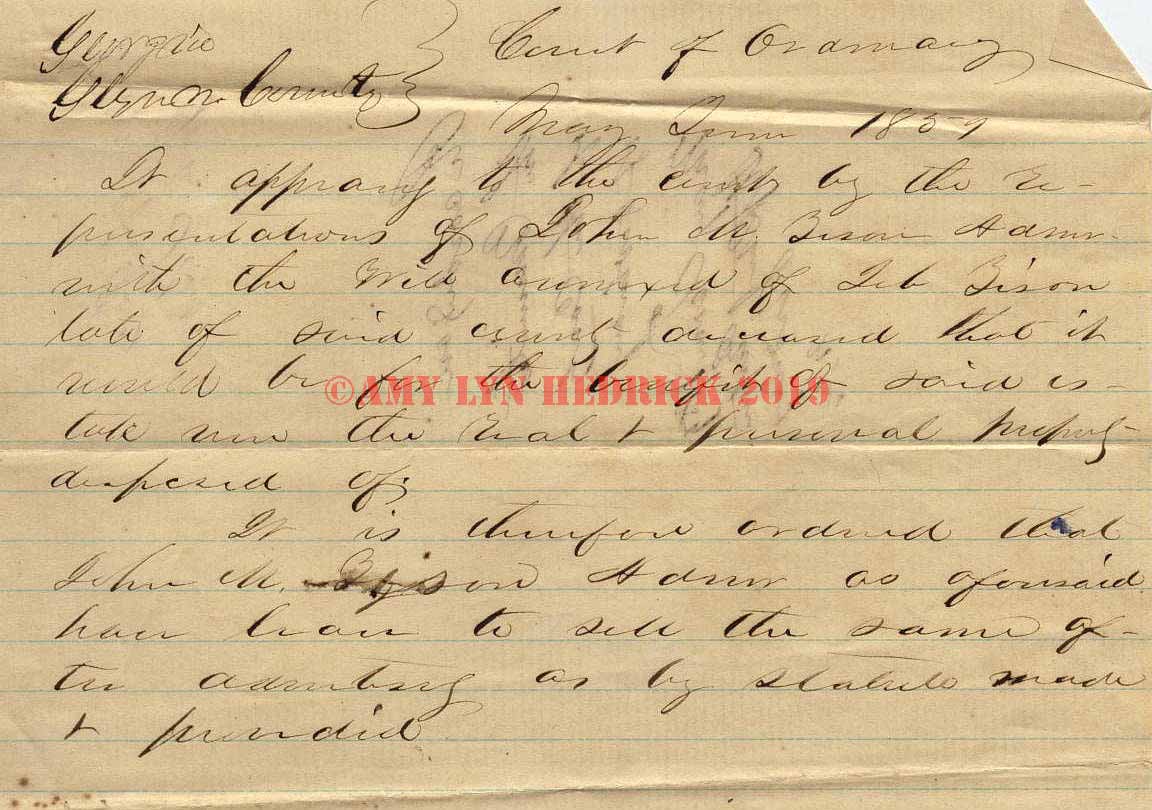 Georgia } Court of Ordinary
Glynn County } May Term 1859
It appearing to the court by the re-
presentations of John M. Tison Admr
with the Will annexed of Job Tison
late of said county deceased that it
would be for the benefit of said es-
©AMY LYN HEDRICK 2019
tate were the real & personal property
disposed of.
It is therefore ordered that
John M. Tison Admr as aforesaid
have leave to sell the same af-
ter advertising as by statute made
& provided